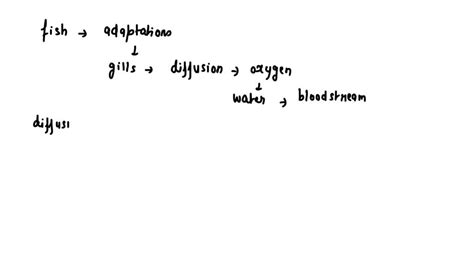 fish → adaptations
↓
gills → diffusion → oxygen
↓
water → bloodstream
diffusi